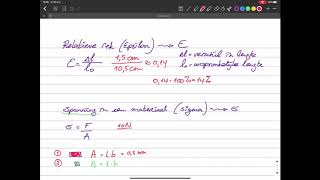 Relatieve rek (Epsilon) → ε
ε = Δl / l₀ = 1,5 cm / 10,5 cm ≈ 0,14
Δl = verschil in lengte
l₀ = oorspronkelijke lengte
0,14 · 100% = 14%
Spanning in een materiaal (sigma) → σ
σ = F / A
① A = l·b = 0,5 mm
② A = l·b